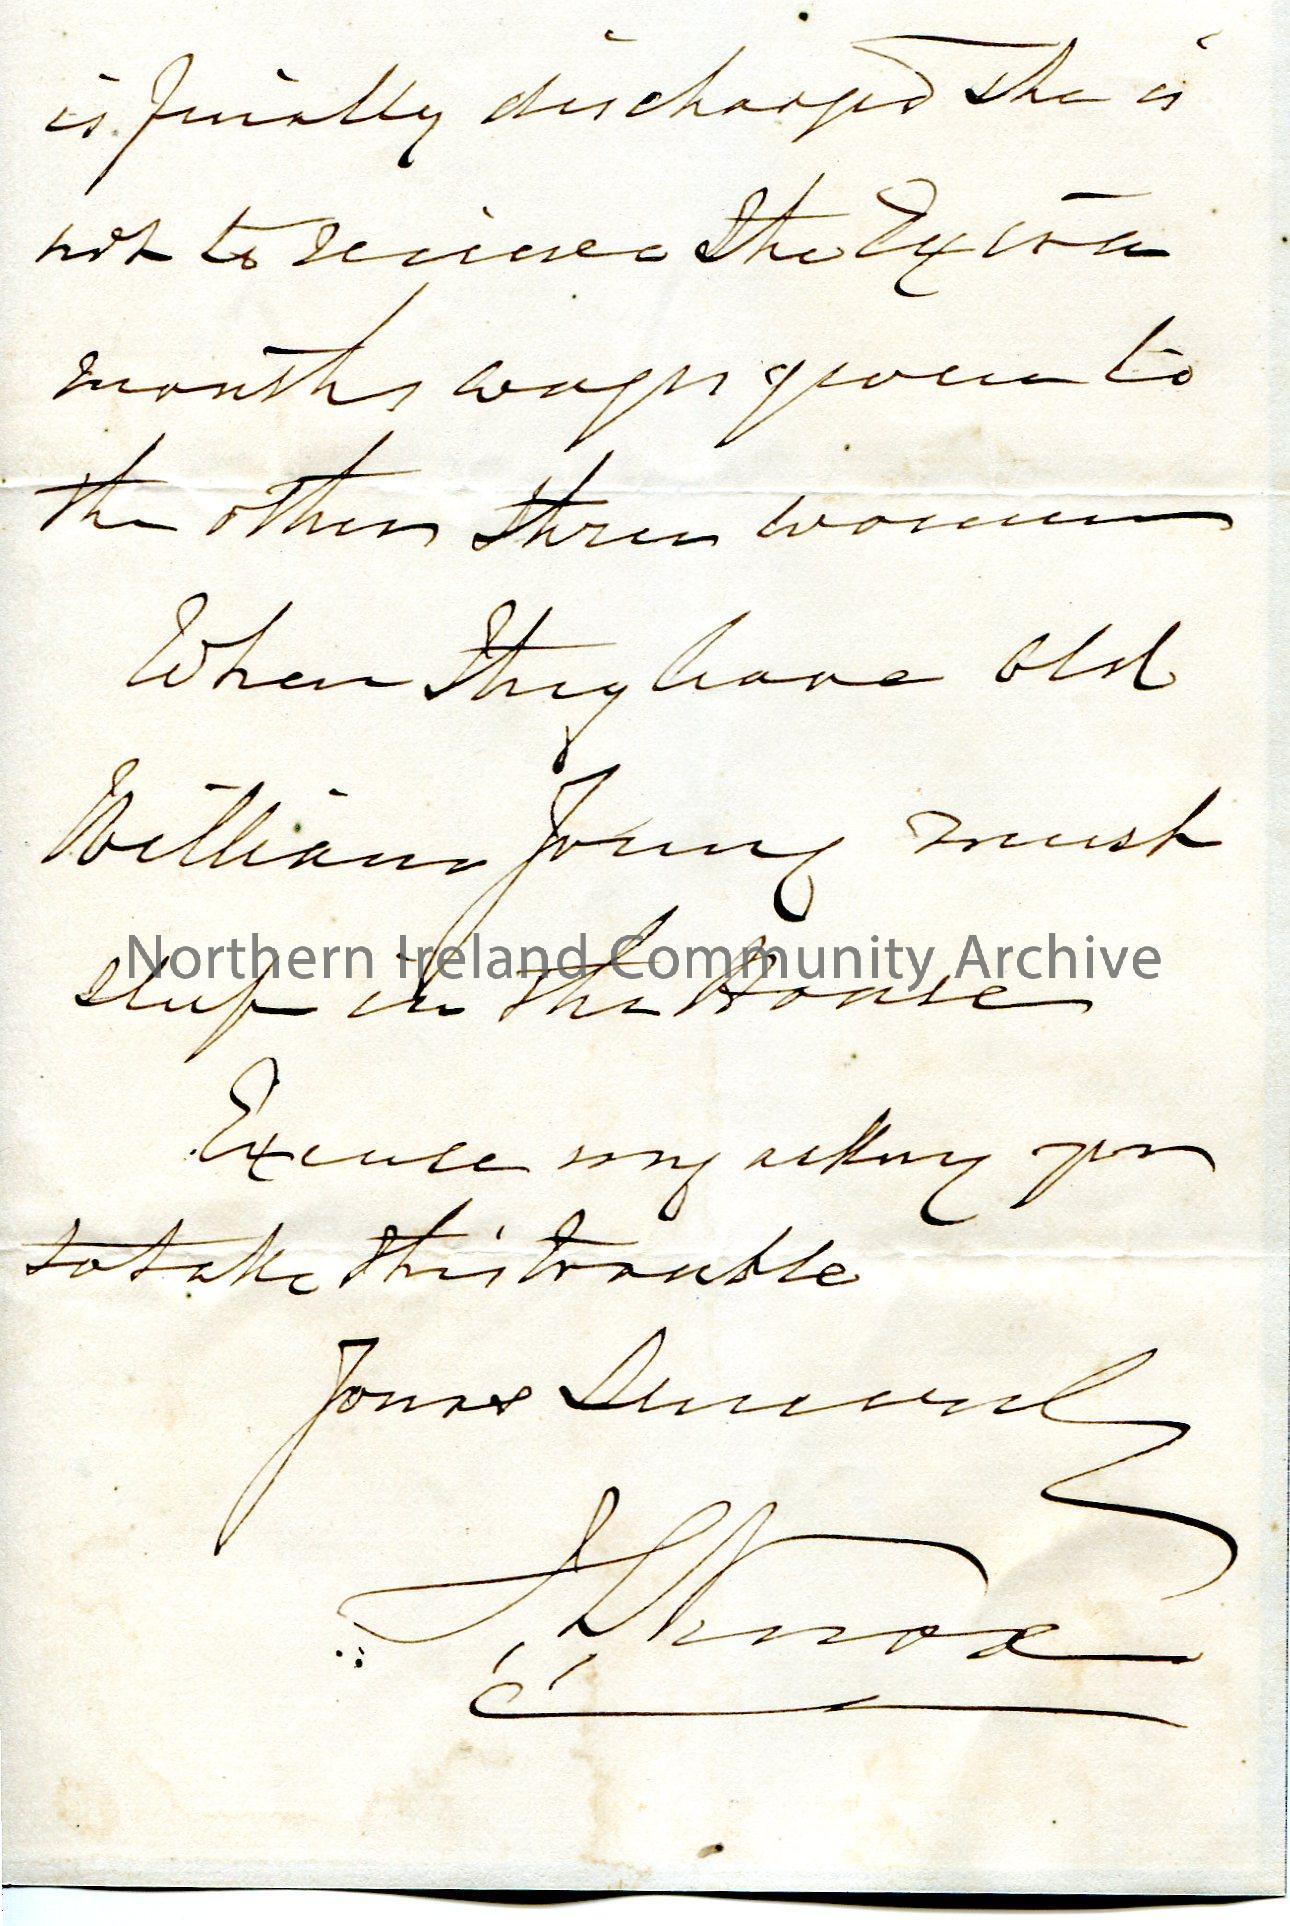 is finally discharged she is
not to receive the Extra
months wages given to
the other three women
When they leave old
William Young must
sleep in the House
Northern Ireland Community Archive
Excuse my asking you
to take this trouble
Yours Sincerely
Knox